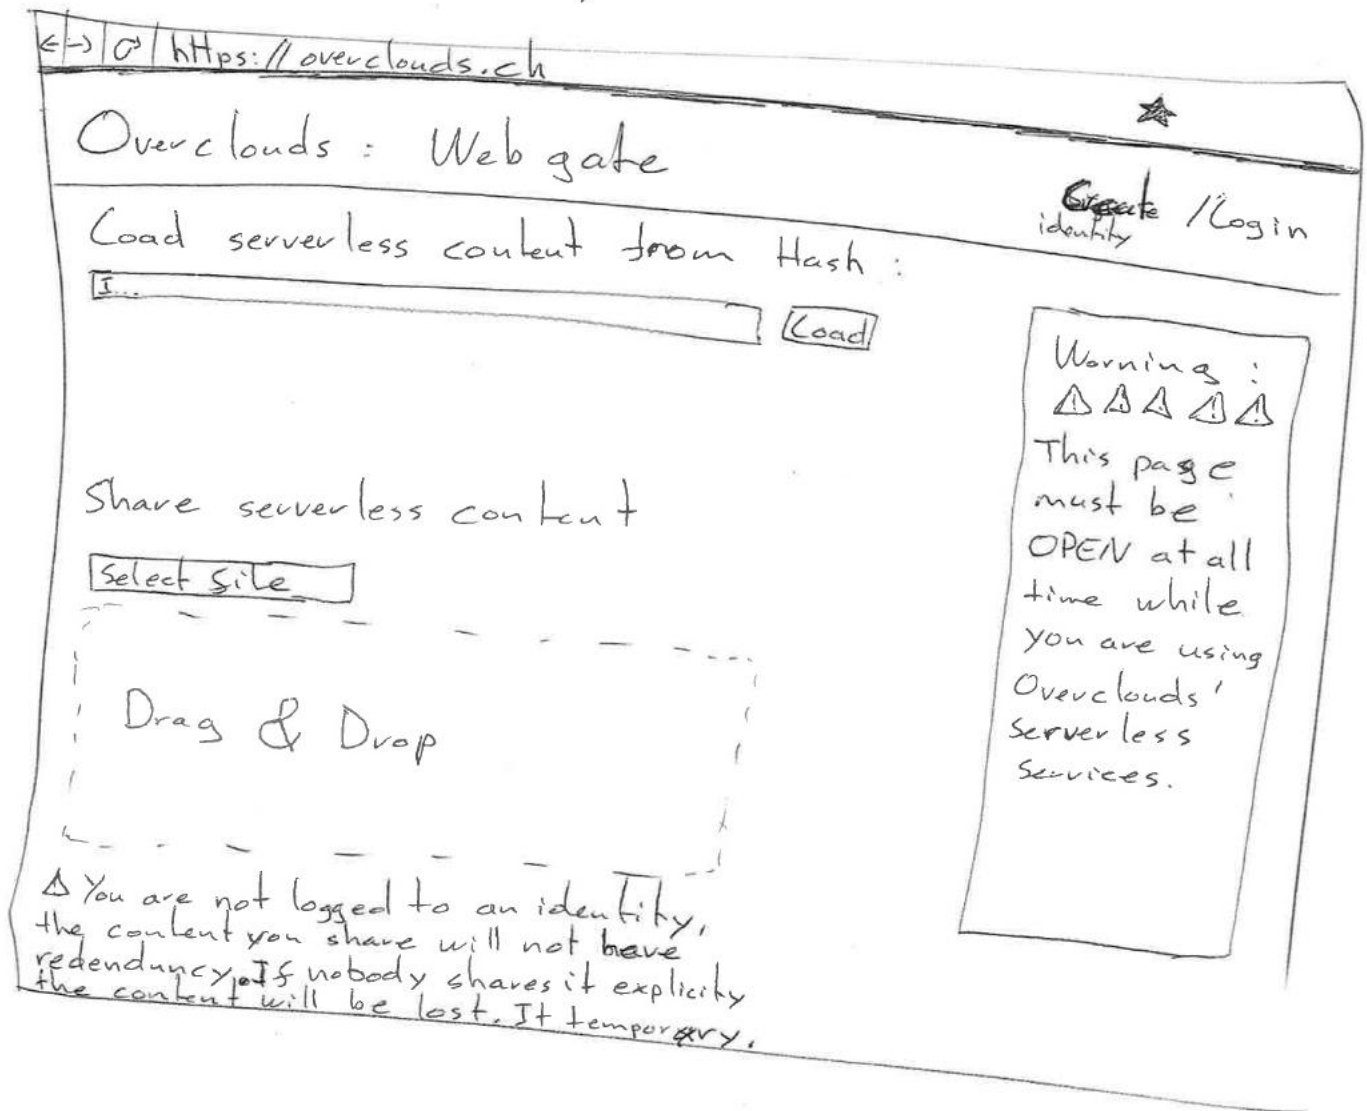 ← → ↻ https://overclouds.ch
Overclouds: Web gate
Create /Login
identity
Load serverless content from Hash:
I...
Load
Warning:
⚠ ⚠ ⚠ ⚠ ⚠
This page
must be
OPEN at all
time while
you are using
Overclouds'
serverless
services.
Share serverless content
Select file
Drag & Drop
⚠ You are not logged to an identity,
the content you share will not have
redenduncy. If nobody shares it explicity
the content will be lost. It temporary.